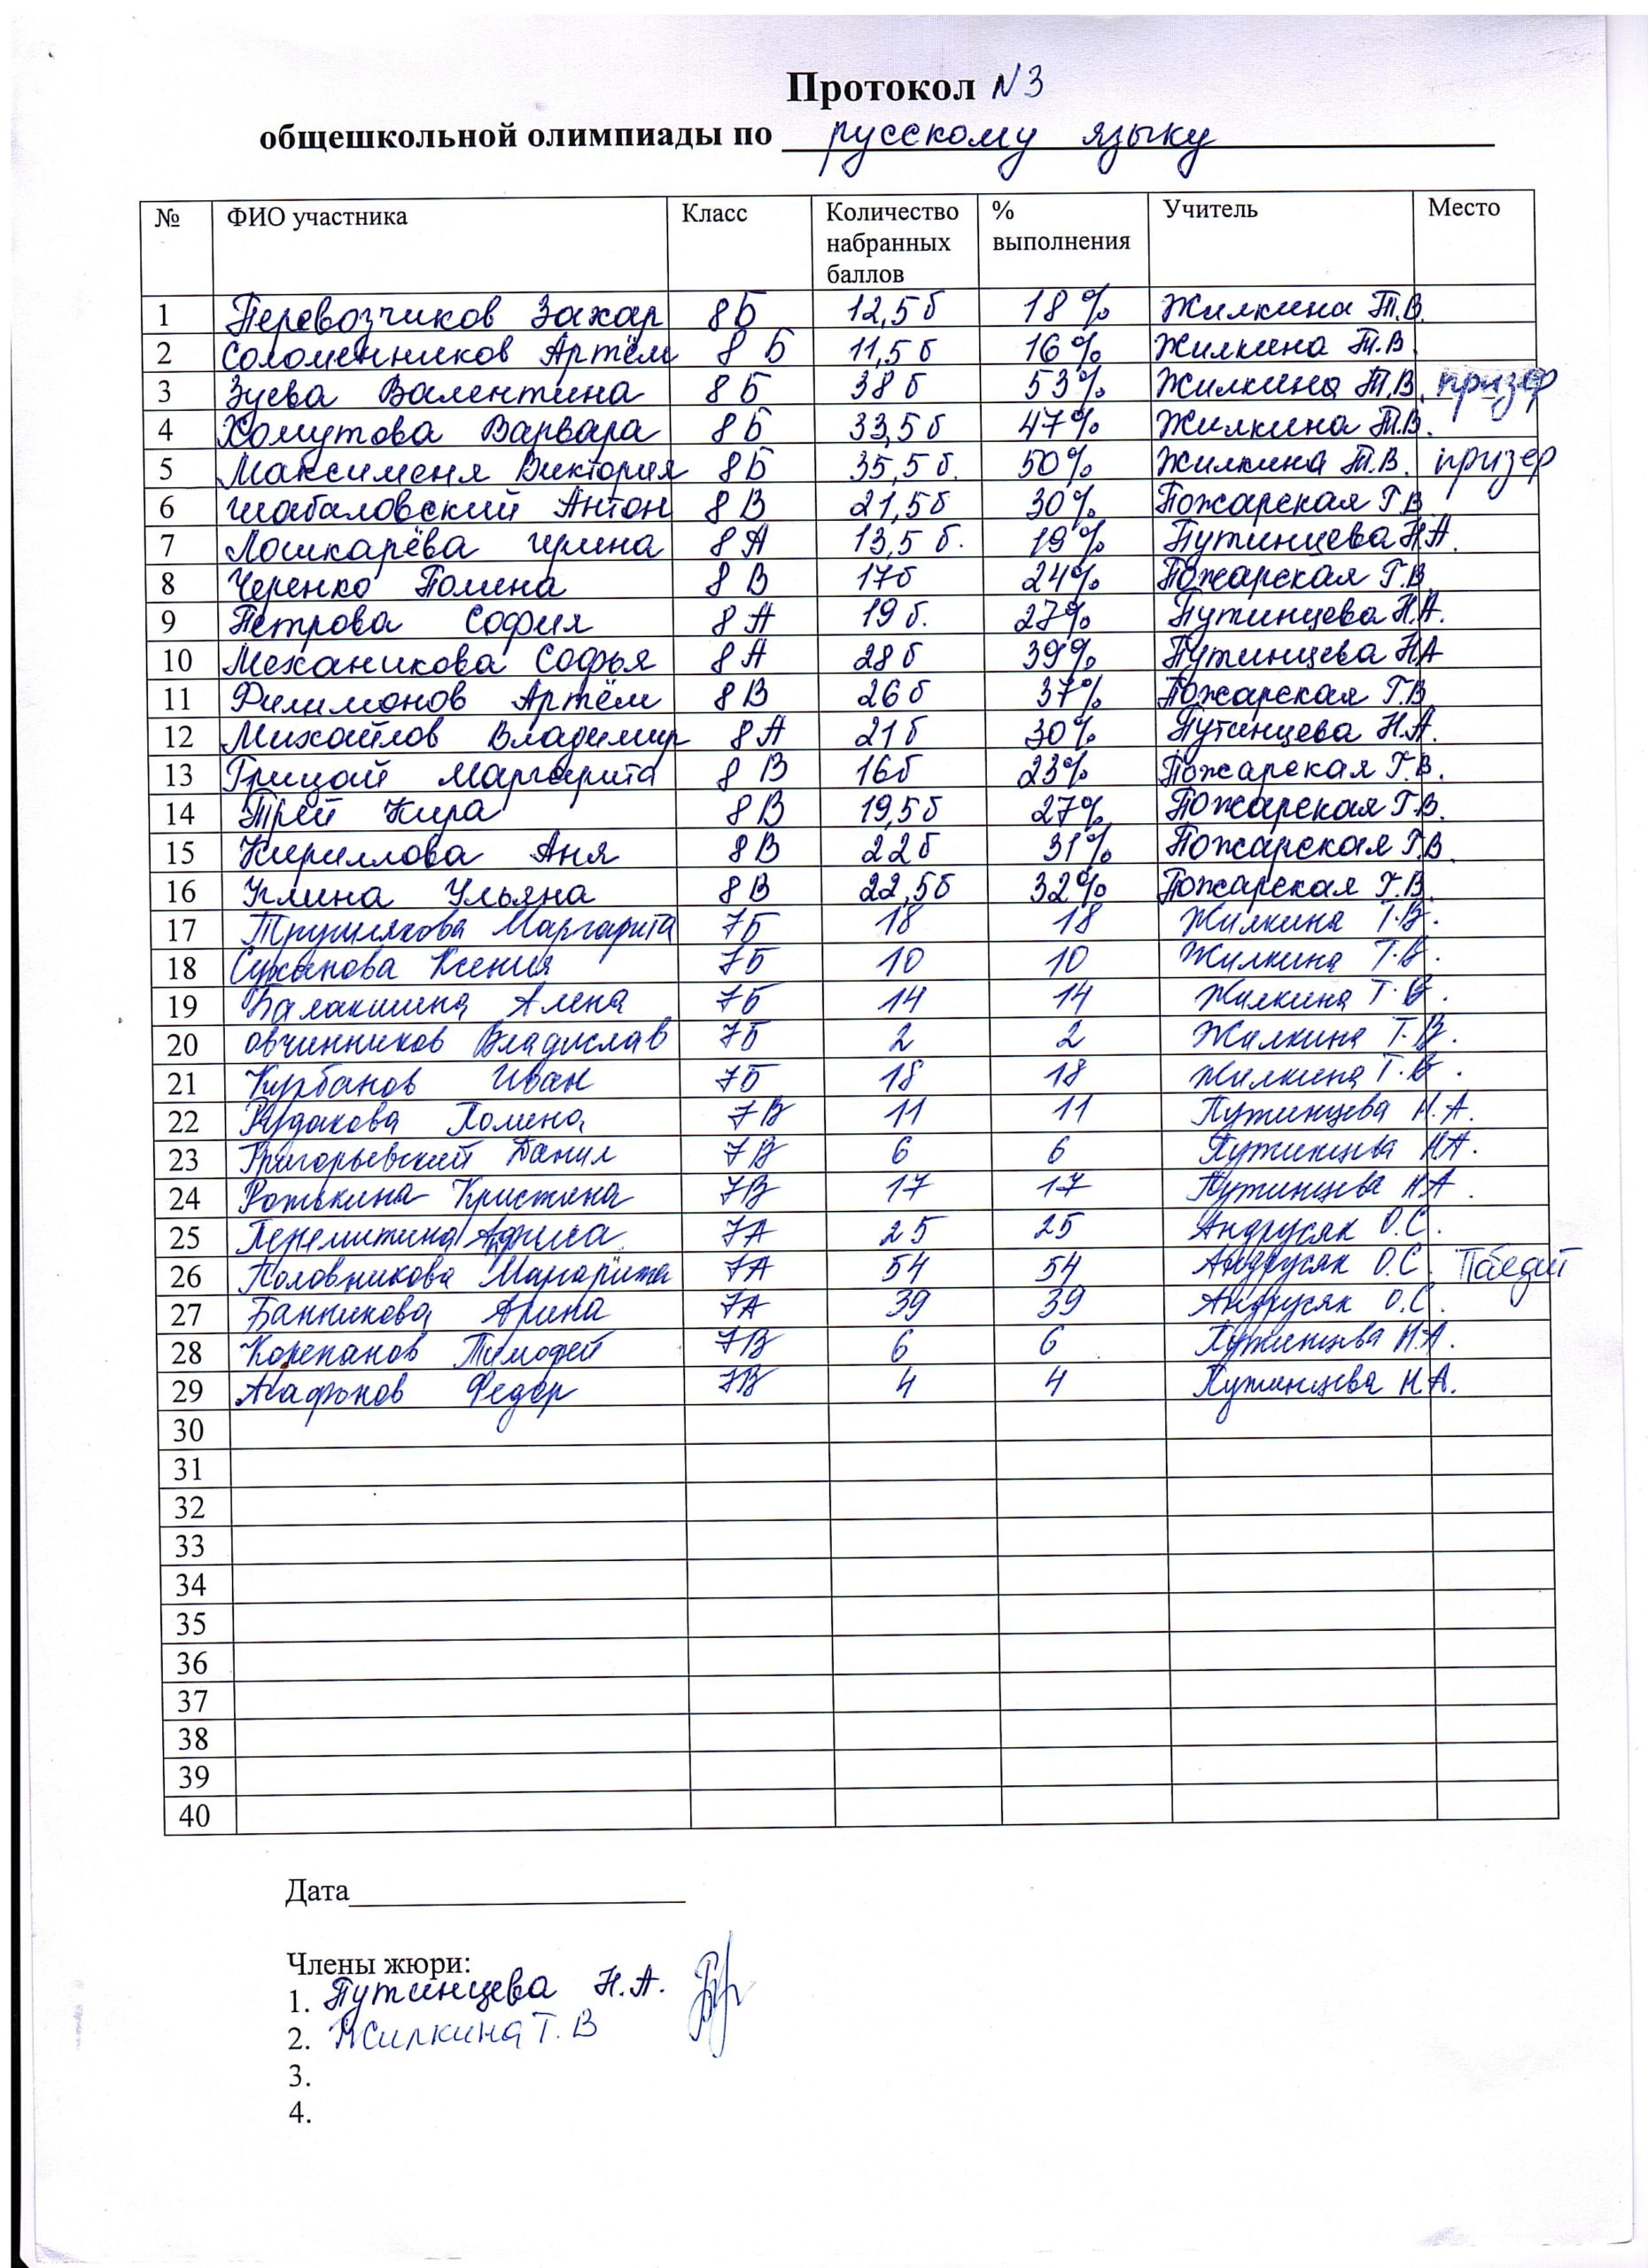 Протокол N 3
общешкольной олимпиады по русскому языку
№ ФИО участника Класс Количество набранных баллов % выполнения Учитель Место
1 Перевозчиков Захар 8Б 12,5 б 18 % Жилкина Т.В.
2 Соломенников Артём 8 Б 11,5 б 16 % Жилкина Т.В.
3 Зуева Валентина 8 Б 38 б 53% Жилкина Т.В. призер
4 Хомутова Варвара 8 Б 33,5 б 47% Жилкина Т.В.
5 Максименя Виктория 8Б 35,5 б. 50% Жилкина Т.В. призер
6 Шабаловский Антон 8 В 21,5б 30% Пожарская Г.В
7 Лошкарёва Ирина 8 А 13,5 б. 19% Путинцева Н.А.
8 Черенко Полина 8 В 17б 24% Пожарская Г.В
9 Петрова София 8 А 19 б. 27% Путинцева Н.А.
10 Механикова Софья 8 А 28 б 39% Путинцева Н.А
11 Филимонов Артём 8 В 26 б 37% Пожарская Г.В
12 Михайлов Владимир 8 А 21 б 30% Путинцева Н.А.
13 Грицай Маргарита 8 В 16б 23% Пожарская Г.В.
14 Трей Кира 8 В 19,5 б 27% Пожарская Г.В.
15 Кириллова Аня 8В 22б 31% Пожарская Г.В.
16 Ульяна 8 В 22,5б 32% Пожарская Г.В.
17 Маргарита 7Б 18 18 Жилкина Т.В.
18 Суханова Ксения 7Б 10 10 Жилкина Т.В.
19 Балакшина Алена 7Б 14 14 Жилкина Т.В.
20 Овчинников Владислав 7Б 2 2 Жилкина Т.В.
21 Курбанов Иван 7Б 18 18 Жилкина Т.В.
22 Рудакова Полина 7В 11 11 Путинцева Н.А.
23 Григорьевский Данил 7В 6 6 Путинцева Н.А.
24 Ротькина Кристина 7В 17 17 Путинцева Н.А.
25 Перемитина 7А 25 25 Андрусяк О.С.
26 Половникова Маргарита 7А 54 54 Андрусяк О.С.
27 Банникова Арина 7А 39 39 Андрусяк О.С.
28 Корепанов Тимофей 7В 6 6 Путинцева Н.А.
29 Агафонов Федор 7В 4 4 Путинцева Н.А.
30
31
32
33
34
35
36
37
38
39
40
Дата
Члены жюри:
1. Путинцева Н.А.
2. Жилкина Т.В
3.
4.